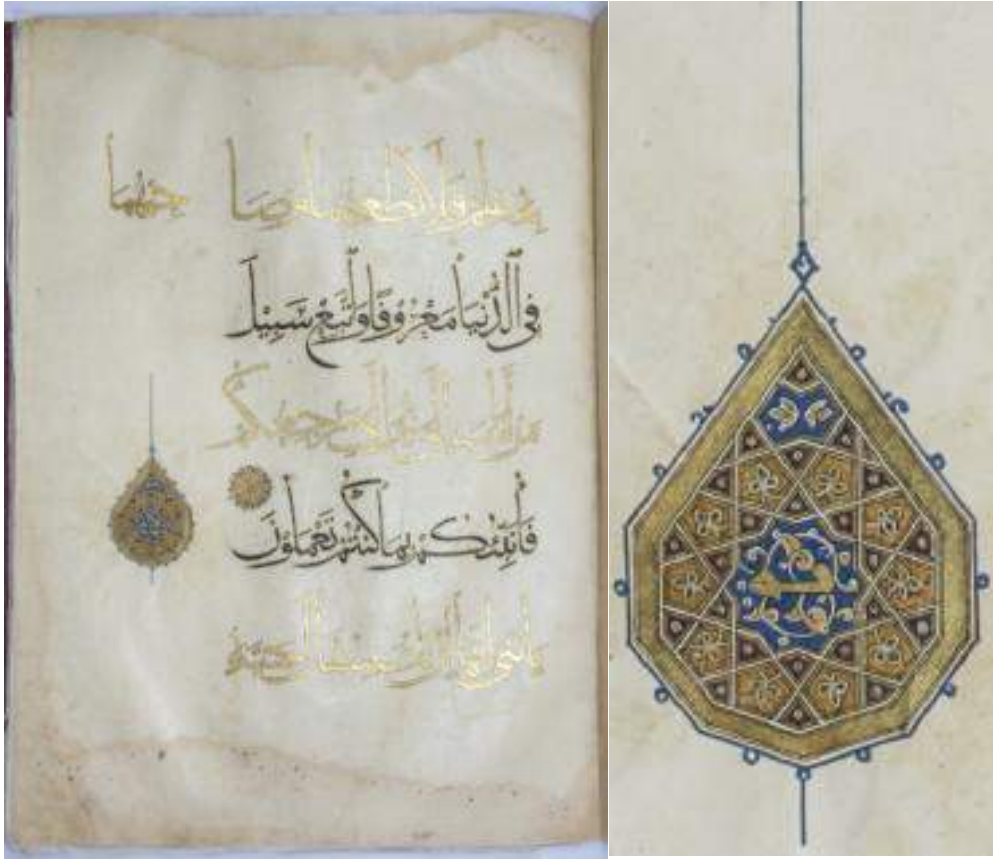 به علم فلا تطعهما وصا حبهما
فِي الدُّنْيَا مَعْرُوفًا وَاتَّبِعْ سَبِيْلَ
من أناب إلي ثم إلي مرجعكم
فَأُنَبِّئُكُمْ بِمَا كُنْتُمْ تَعْمَلُوْنَ
يا بني إنها إن تك مثقال حبة